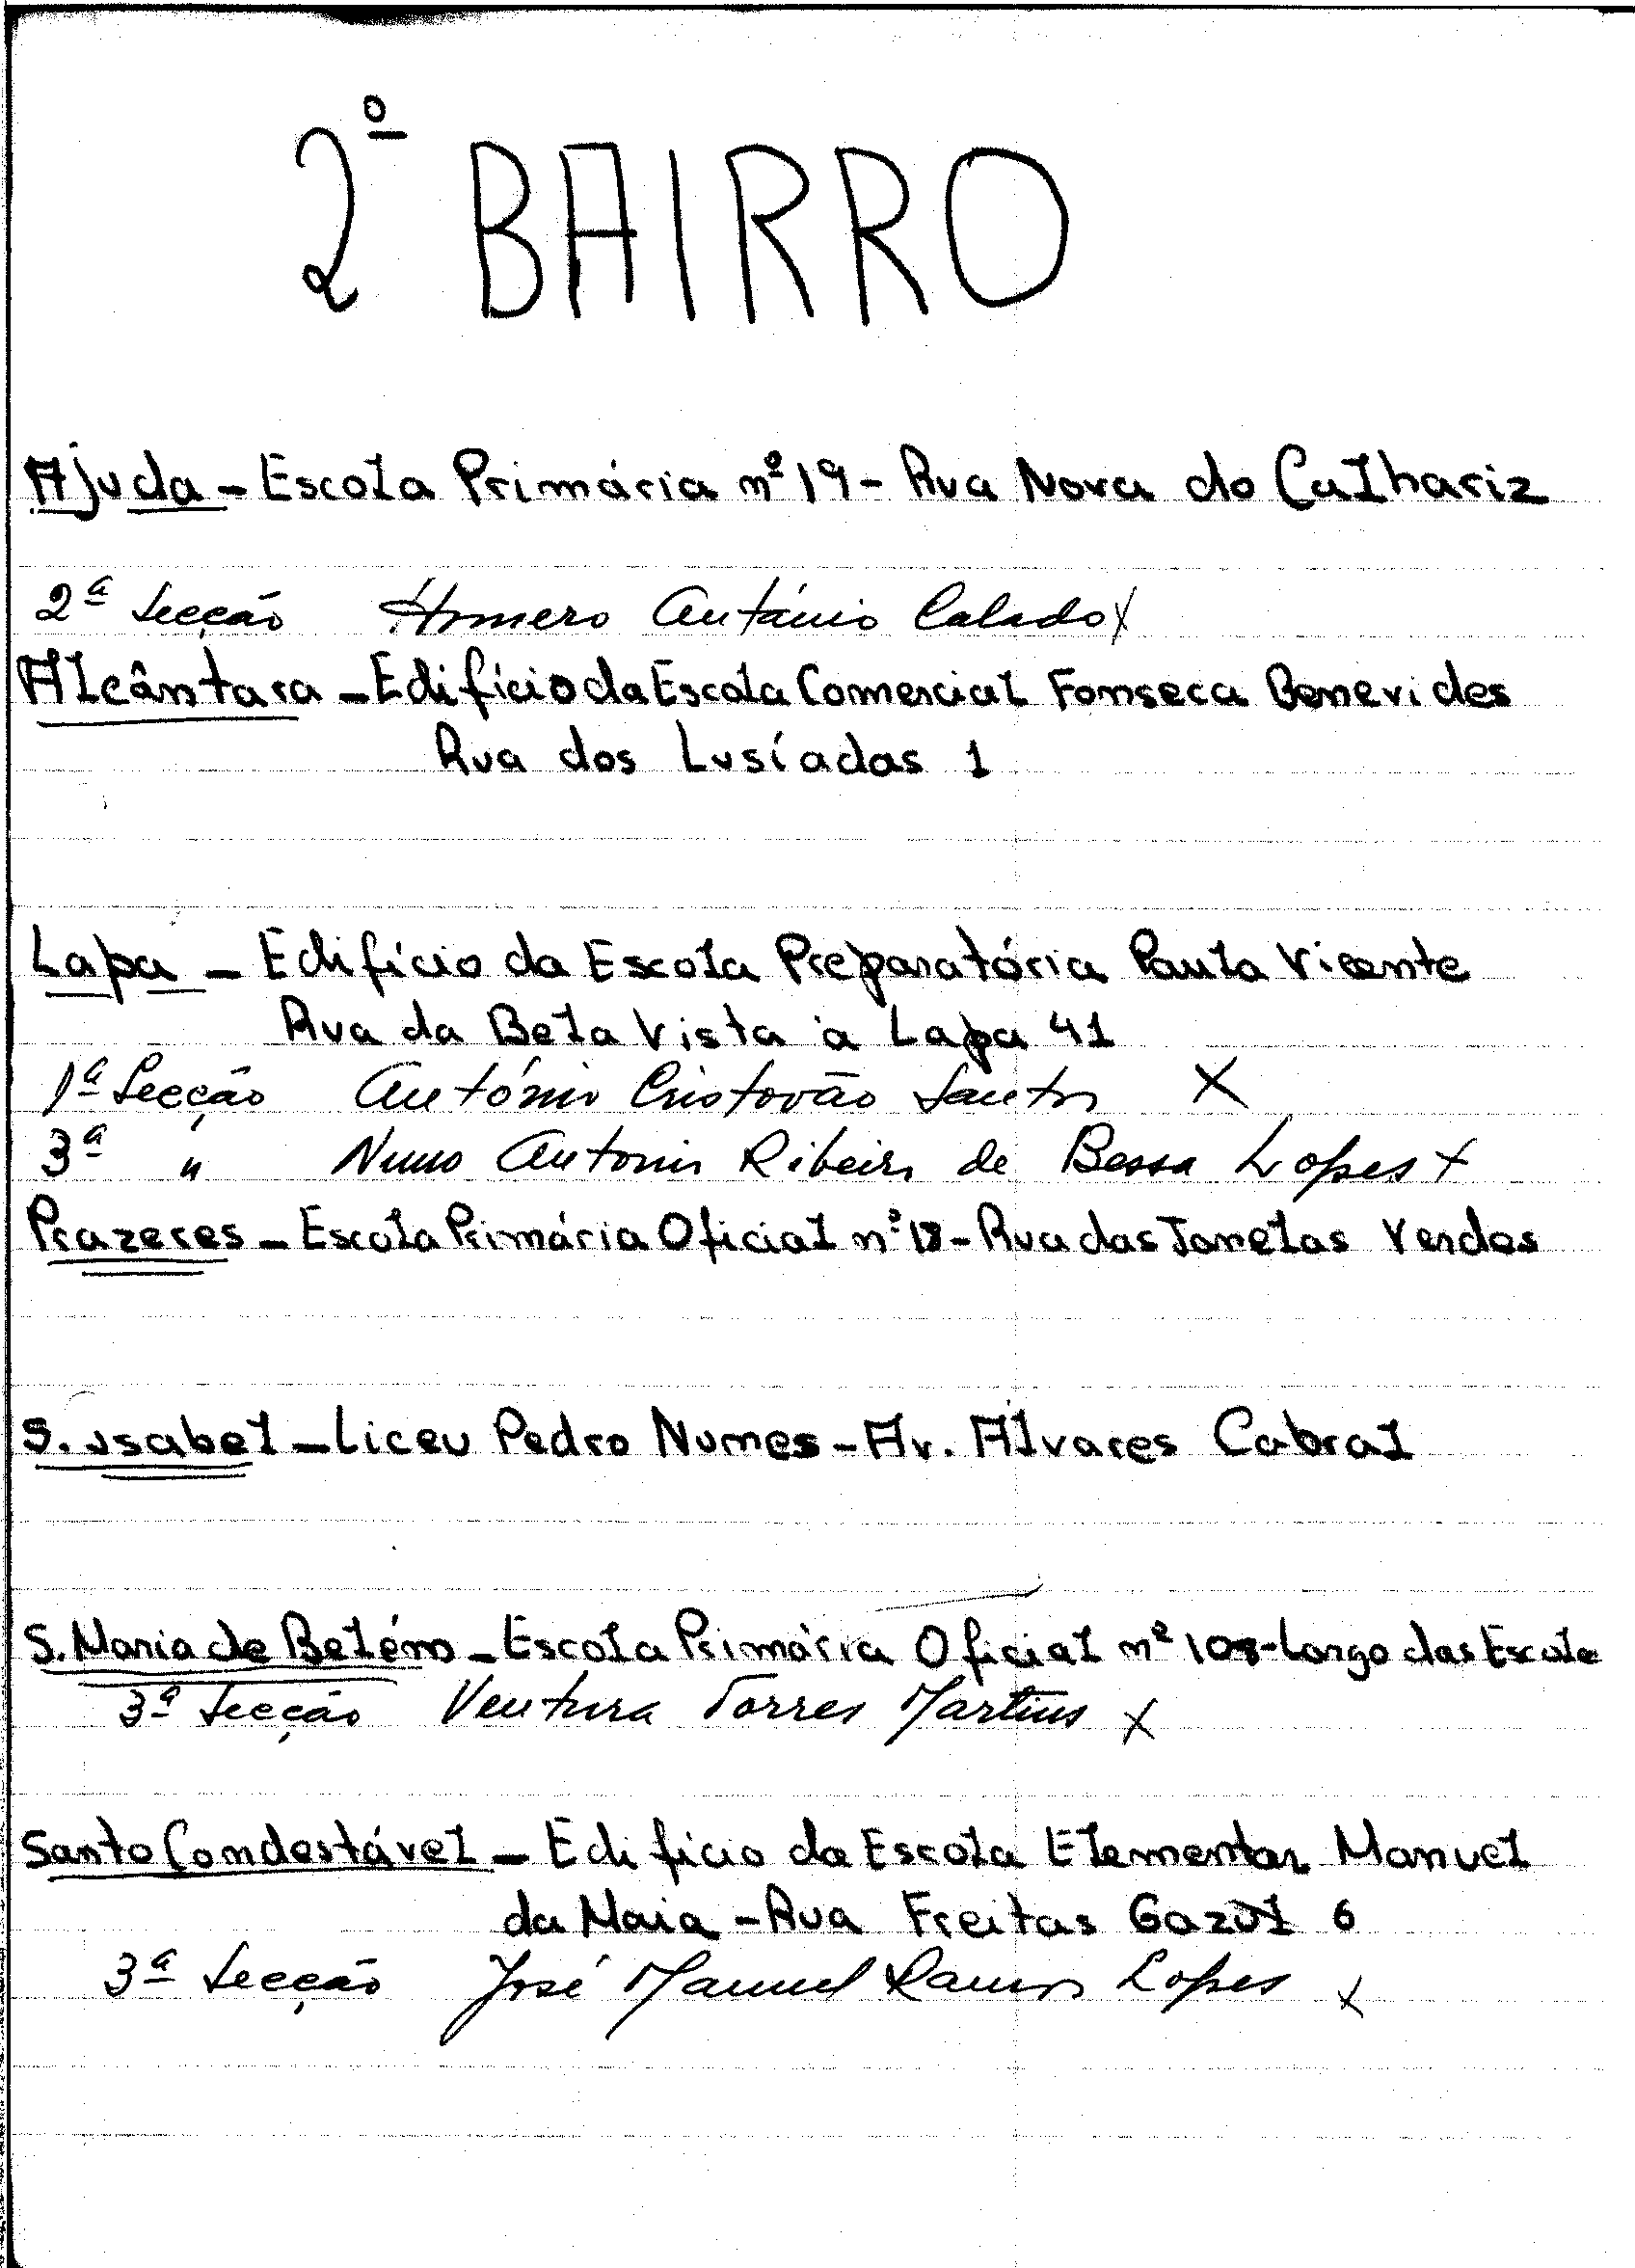 2º BAIRRO
Ajuda - Escola Primária nº 19 - Rua Nova do Calhariz
2ª Secção Homero António Calado X
Alcântara - Edifício da Escola Comercial Fonseca Benevides
Rua dos Lusíadas 1
Lapa - Edifício da Escola Preparatória Paula Vicente
Rua da Bela Vista à Lapa 41
1ª Secção António Cristovão Santos X
3ª " Nuno Antonio Ribeiro de Bessa Lopes X
Prazeres - Escola Primária Oficial nº 18 - Rua das Janelas Verdes
S. Isabel - Liceu Pedro Nunes - Av. Álvares Cabral
S. Maria de Belém - Escola Primária Oficial nº 108 - Largo das Escola
3ª Secção Ventura Torres Martins X
Santo Condestável - Edifício da Escola Elementar Manuel
da Maia - Rua Freitas Gazul 6
3ª Secção José Manuel Ramos Lopes X